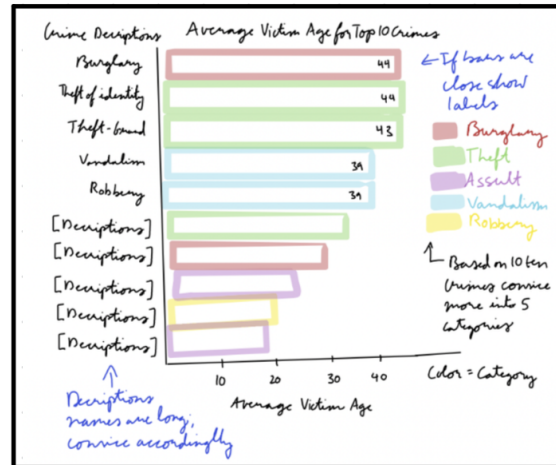 Crime Decriptions
Average Victim Age for Top 10 Crimes
Burglary
44
Theft of identity
44
43
Vandalism
39
Robbery
39
[Decriptions]
[Decriptions]
[Decriptions]
[Decriptions]
[Decriptions]
10
20
30
40
Average Victim Age
Color = Category
← If bars are
close show
labels
Burglary
Theft
Assult
Vandalism
Robbery
Based on 10 ten
crimes convice
more into 5
categories
Decriptions
names are long,
convice accordinglly